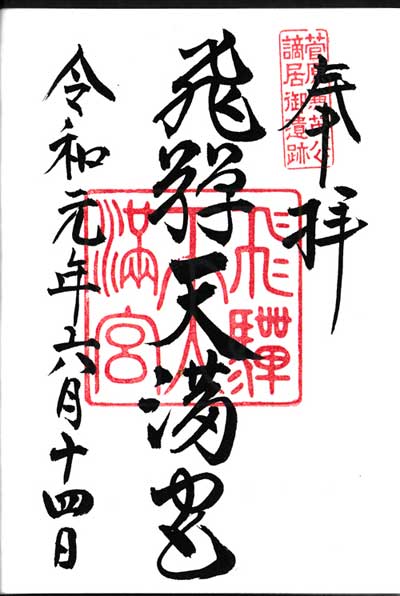 奉拝
菅原兼茂公
謫居御遺跡
飛騨天満宮
飛騨
天
満宮
令和元年六月十四日